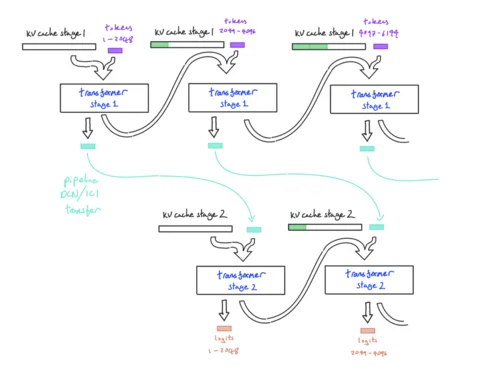 tokens
1-2048
KV cache stage 1
tokens
2049-4096
KV cache stage 1
tokens
4097-6144
KV cache stage 1
transformer
stage 1
transformer
stage 1
transformer
stage 1
pipeline
DCN/ICI
transfer
KV cache stage 2
KV cache stage 2
transformer
stage 2
transformer
stage 2
logits
1-2048
logits
2049-4096